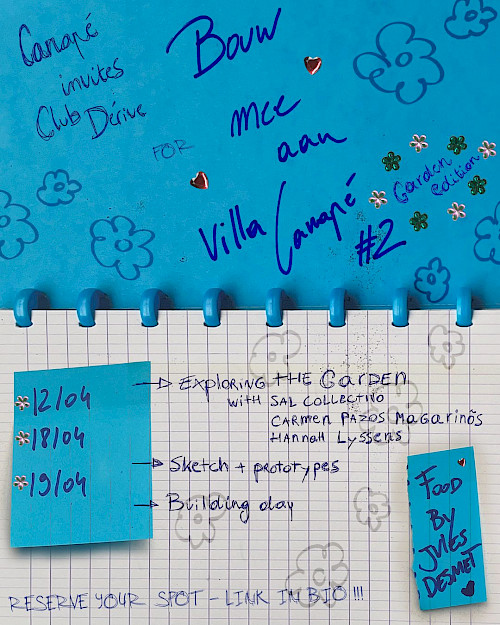 Canapé
invites
Club Dérive
FOR
Bouw
mee
aan
Villa Canapé
#2
Garden
edition
12/04
18/04
19/04
→ Exploring the Garden
with SAL COLLECTIVO
CARMEN PAZOS MAGARIÑOS
HANNAH LYSSENS
→ Sketch + prototypes
→ Building day
FOOD
BY
JULES
DESMET
RESERVE YOUR SPOT - LINK IN BIO !!!